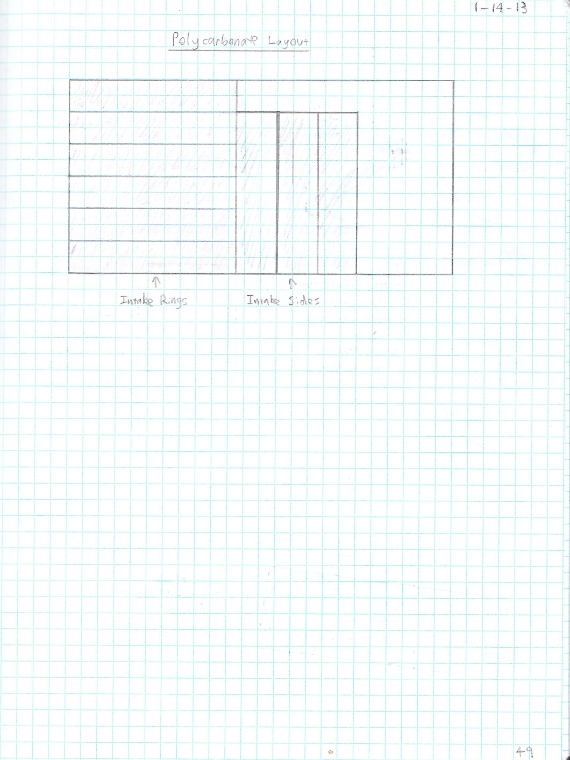 1-14-13
Polycarbonate Layout
Intake Rings
Intake Sides
49